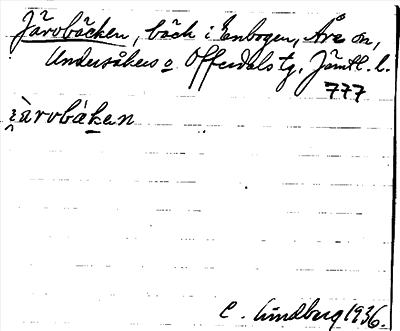 Järvbäcken, bäck i Enbogen, Åre sn,
Undersåkers o Offerdals tg, Jämtl. l.
777
i̯àrvbákɛn
C. Lindberg 1936.